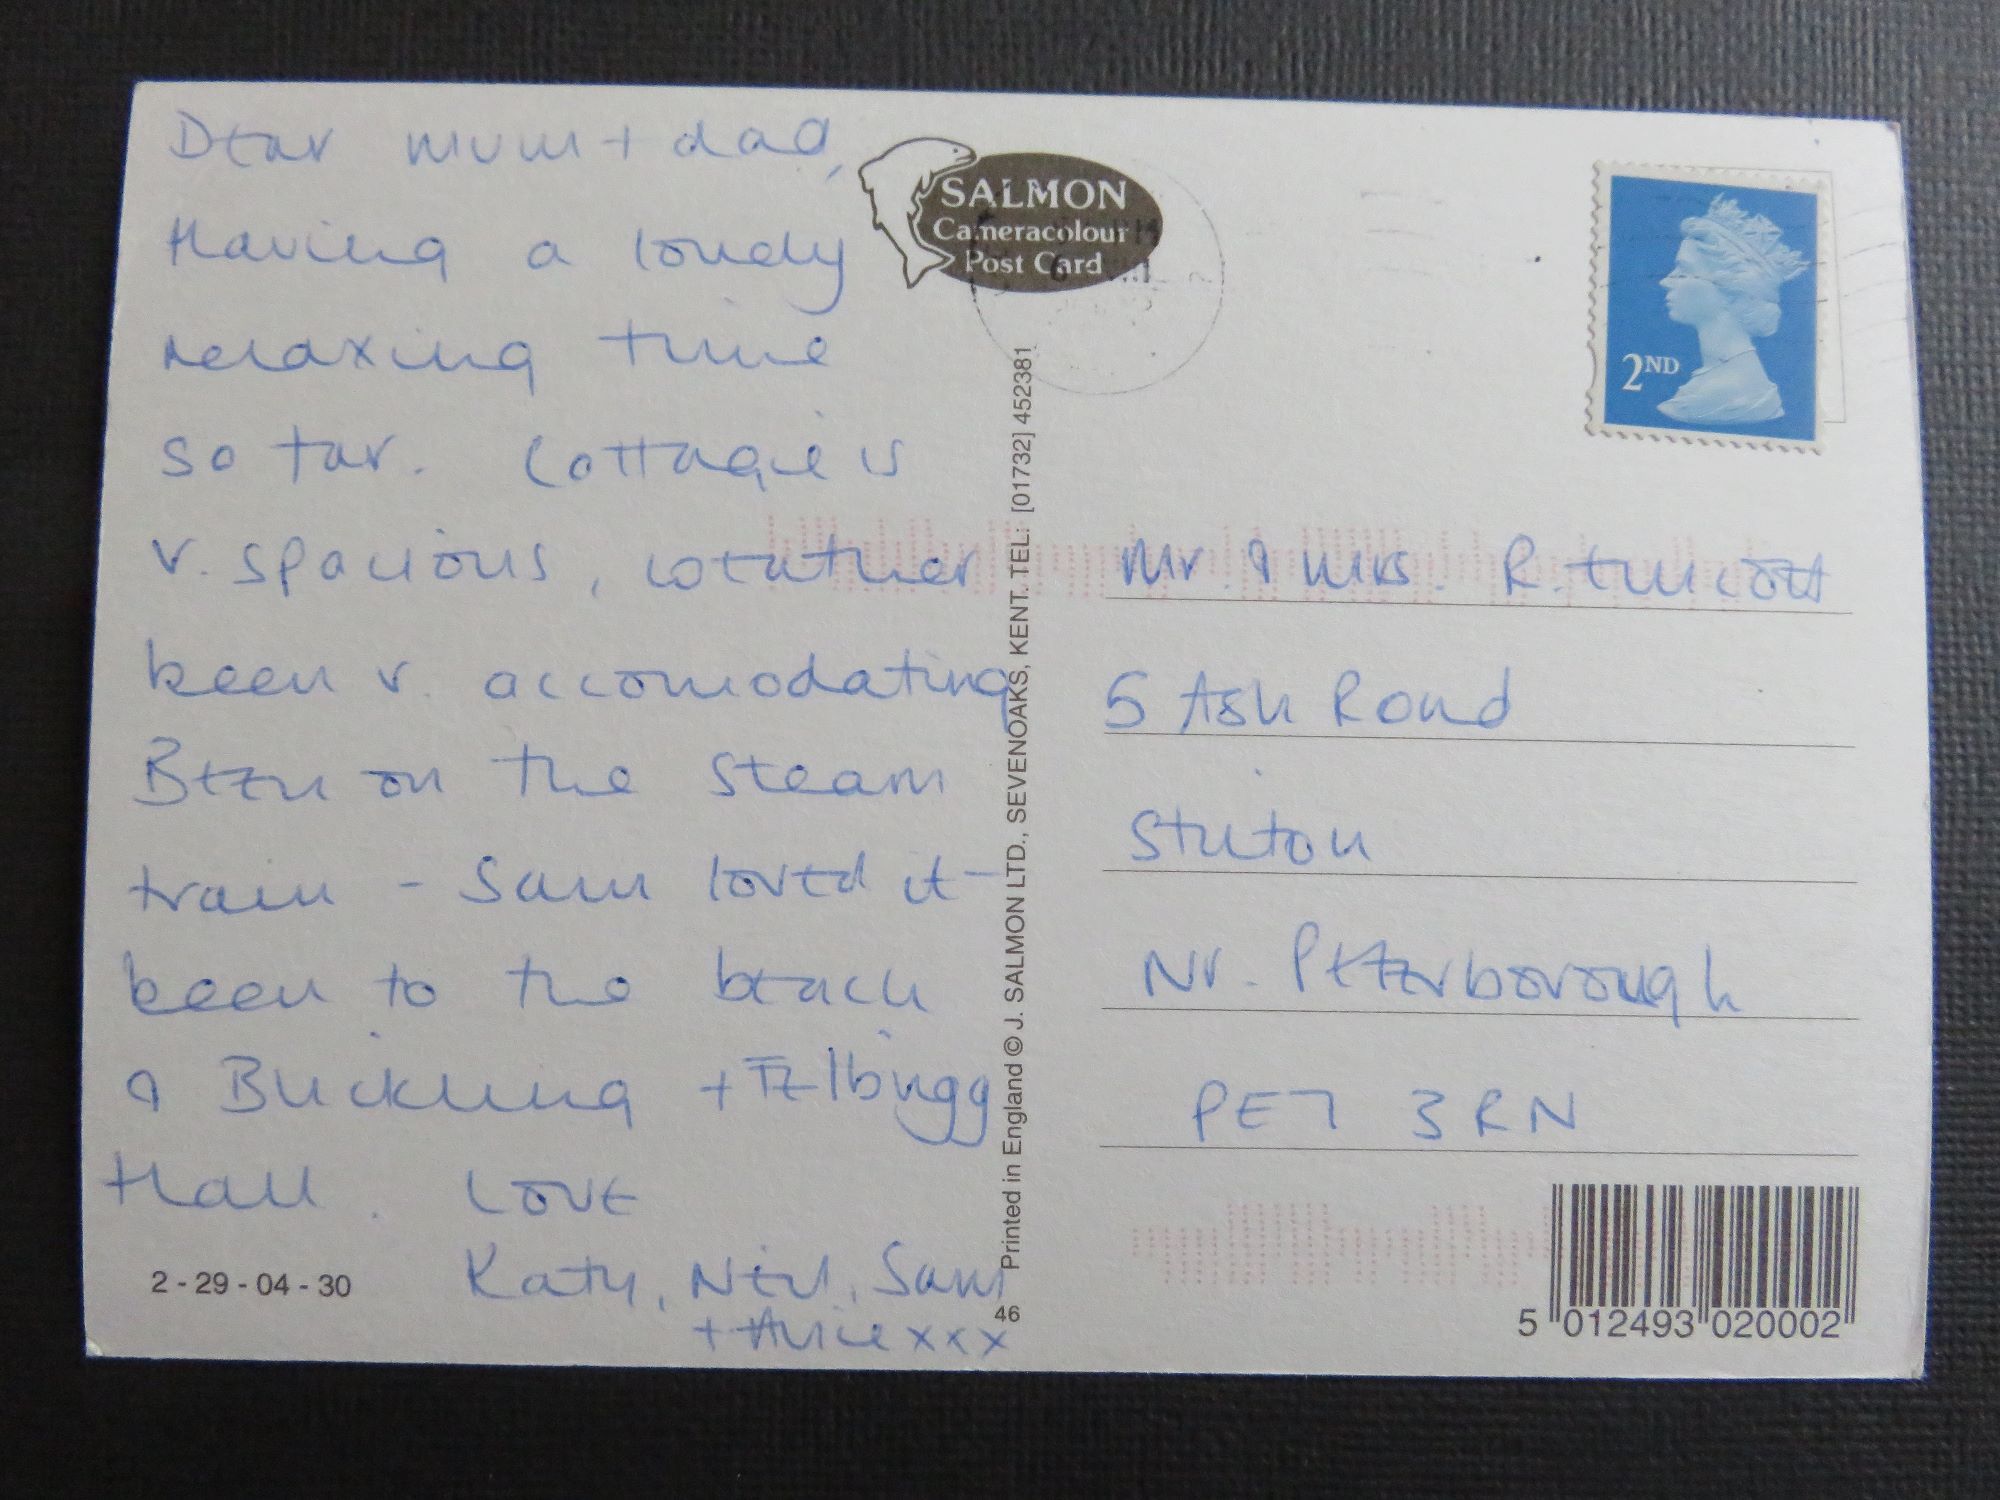 Dear mum + dad,
Having a lovely
relaxing time
so far. Cottage is
v. spacious, weather
been v. accomodating
Been on the steam
train - Sam loved it -
been to the beach
& Blickling + Felbrigg
Hall. Love
Katy, Neil, Sam
+ Alice xxx
2 - 29 - 04 - 30
SALMON
Cameracolour
Post Card
Printed in England © J. SALMON LTD., SEVENOAKS, KENT. TEL: [01732] 452381
46
2ND
Mr. & Mrs. R.
5 Ash Road
Stilton
Nr. Peterborough
PE7 3RN
5 012493 020002